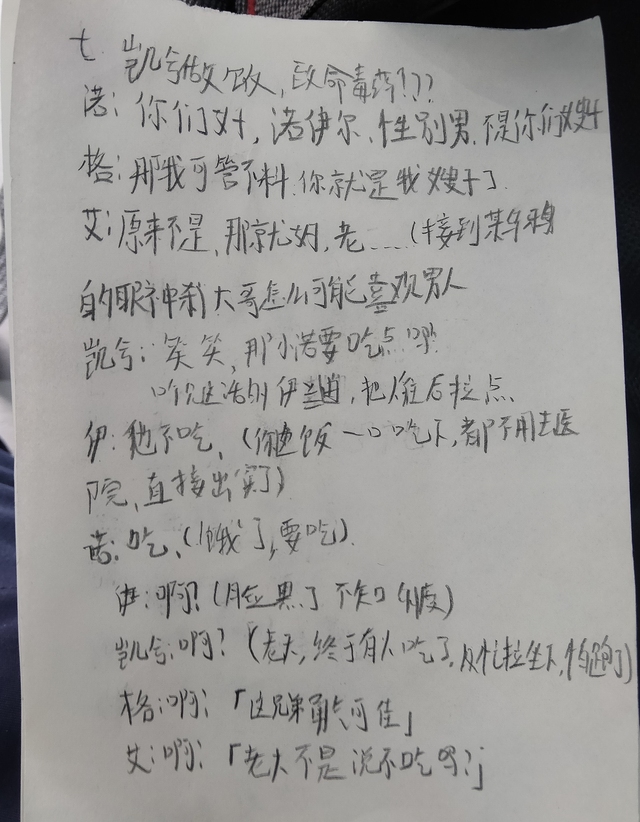 七 凯兮做饭,致命毒药!???
诺:你们好,诺伊尔,性别男,不是你们嫂子
格:那我可管不料.你就是我嫂子了.
艾:原来不是,那就好,老……(接到某乌鸦
的眼神杀)大哥怎么可能喜欢男人
凯兮:笑笑,那小诺要吃点吗?
听见这话的伊,把人往后拉点
伊:他不吃,(你这饭一口吃下,都不用去医
院,直接出实了)
诺:吃,(饿了,要吃).
伊:啊?(脸黑了不知几度)
凯兮:啊?(老天,终于有人吃了,从忙拉坐下,怕跑了)
格:啊?「这兄弟勇气可佳」
艾:啊?「老大不是说不吃吗?」